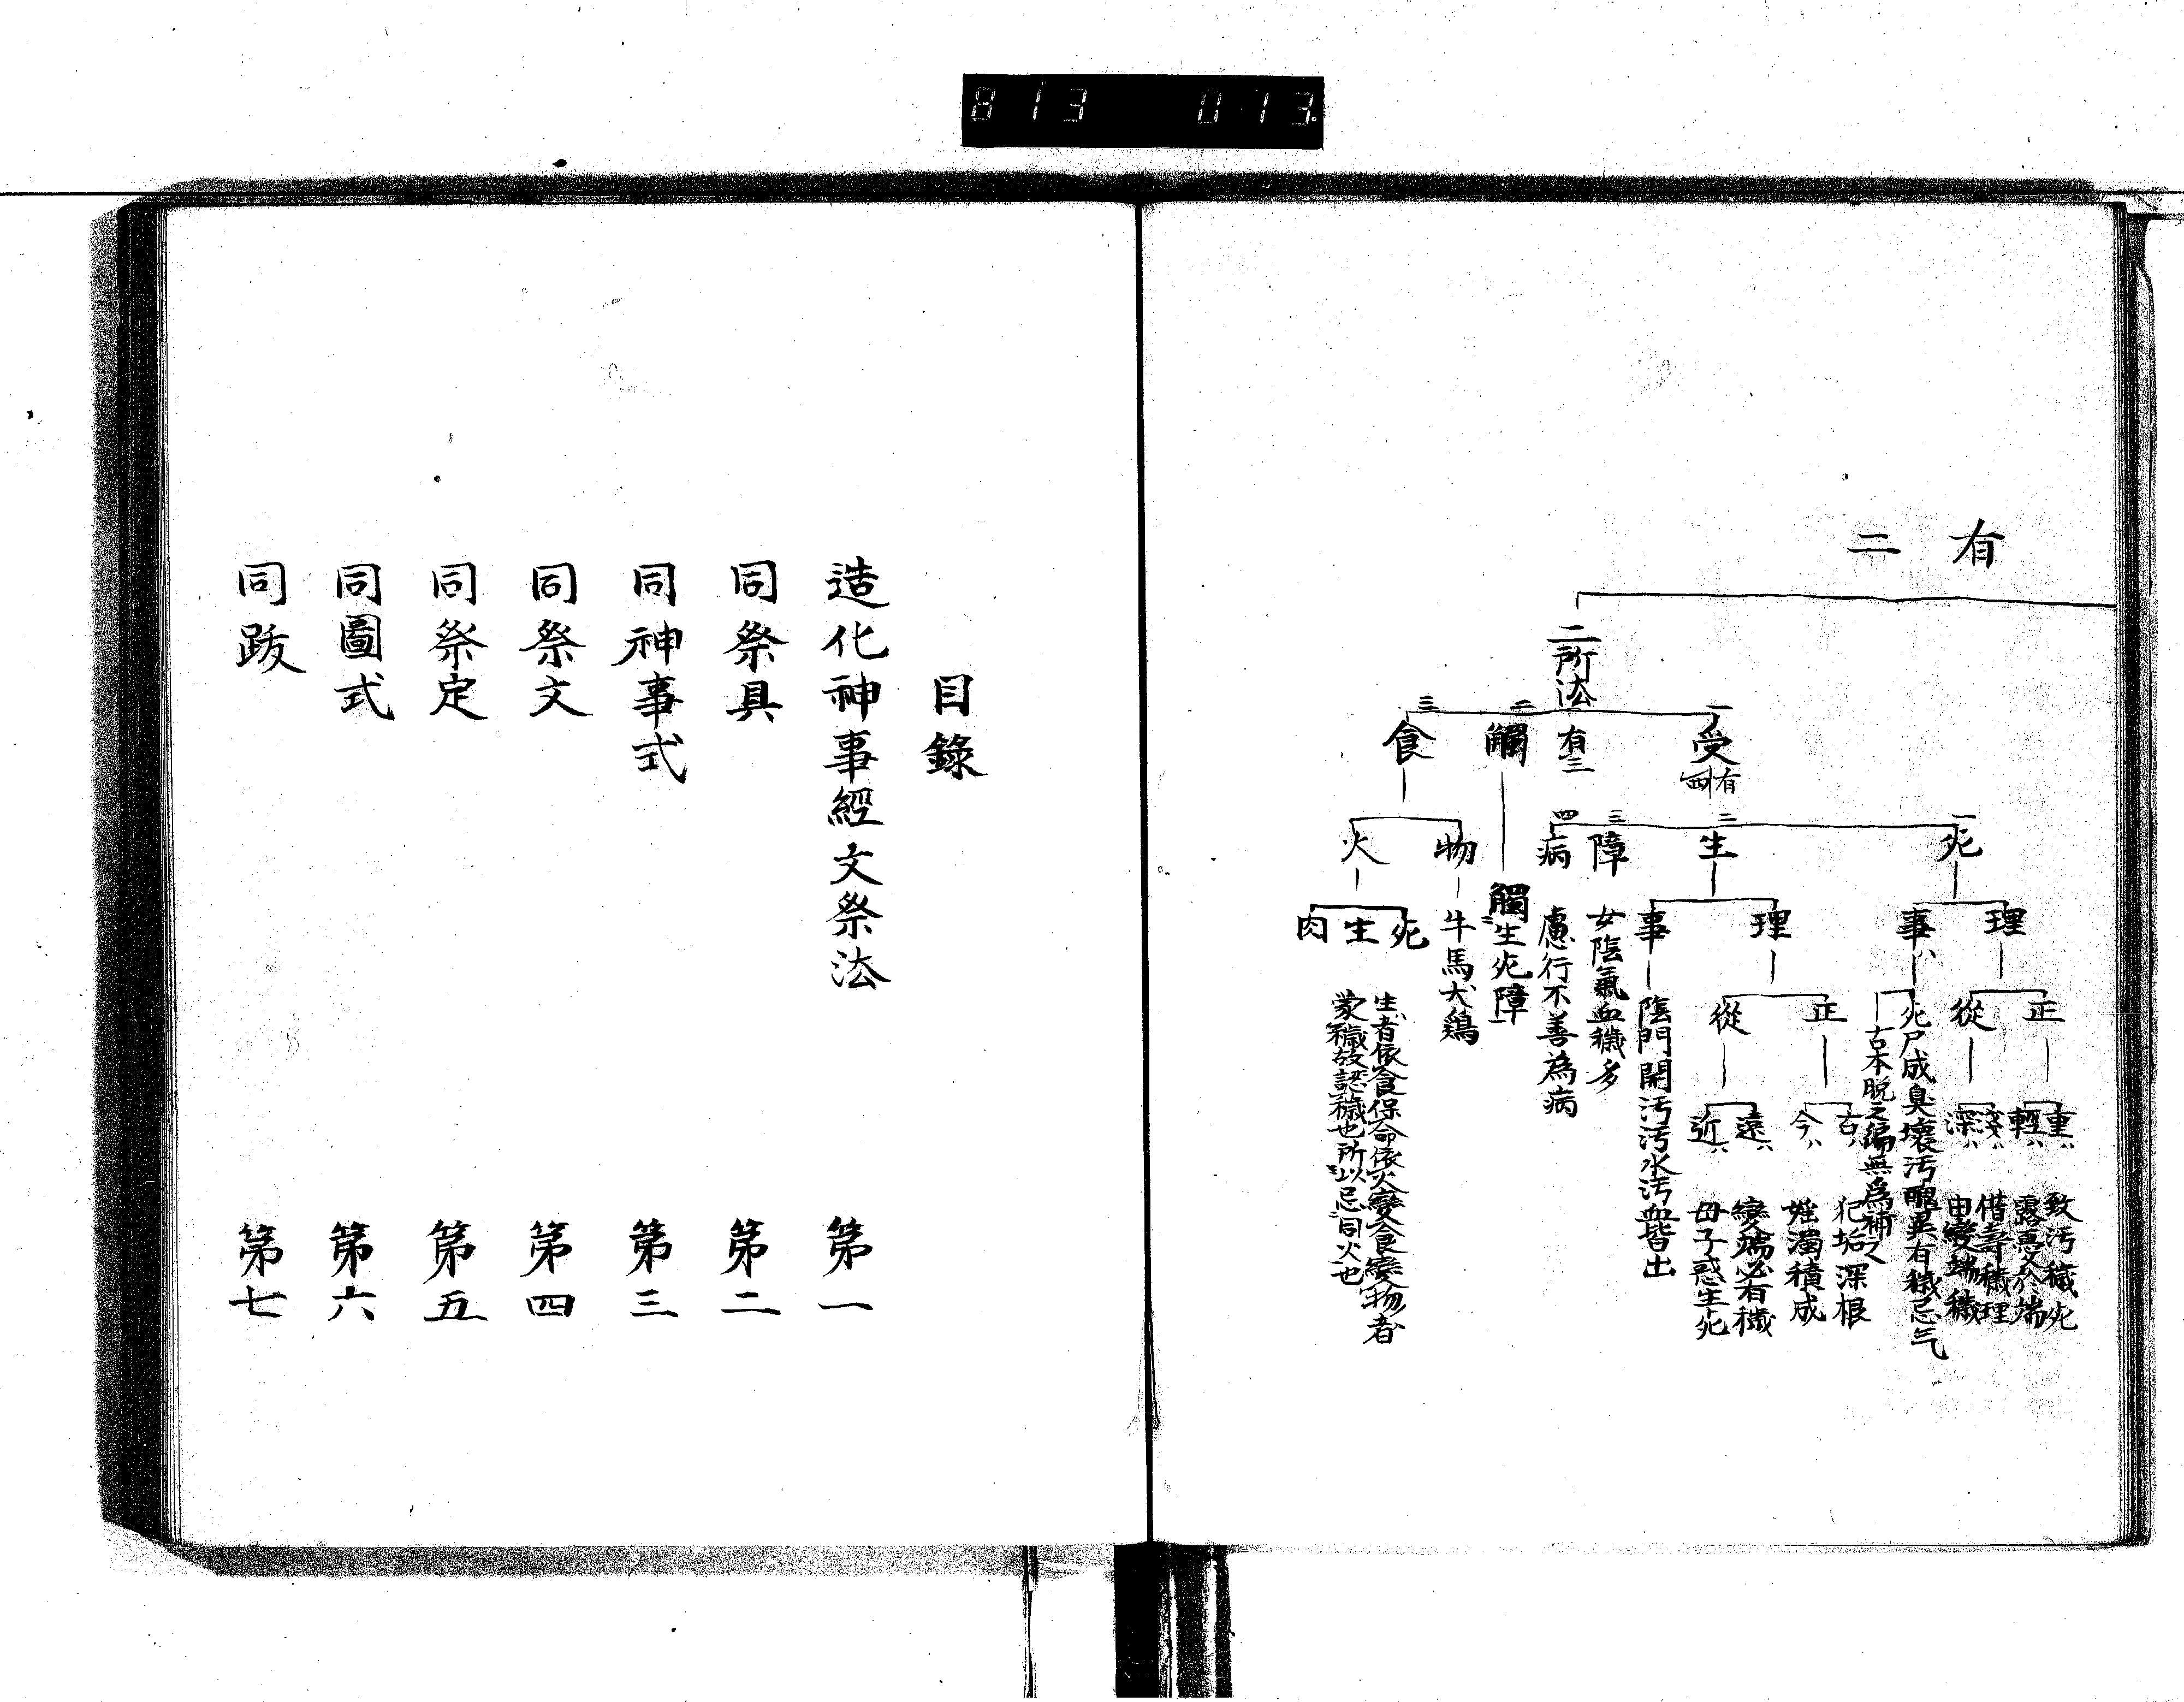 813 013
有二
二所法有三
一受有四
二觸
三食
一死
二生
三障
四病
物
火
理
事ハ
理
事
女陰氣血穢多
慮行不善為病
觸生死障
牛馬犬鷄
死
生
肉
正
從
死尸成臭壞汚醜異有穢忌气
古本脱之偏無為補之
正
從
陰門開汚汚水汚血皆出
重ハ 致汚穢死
輕ハ
淺ハ 借壽穢理
深ハ 由變端穢
古ハ 犯垢深根
今ハ 濁積成
遠ハ 變端必有穢
近ハ 母子惑生死
生者依食保命依火變食變物者
蒙穢故認穢也所以忌同火也
目錄
造化神事經文祭法 第一
同祭具 第二
同神事式 第三
同祭文 第四
同祭定 第五
同圖式 第六
同跋 第七